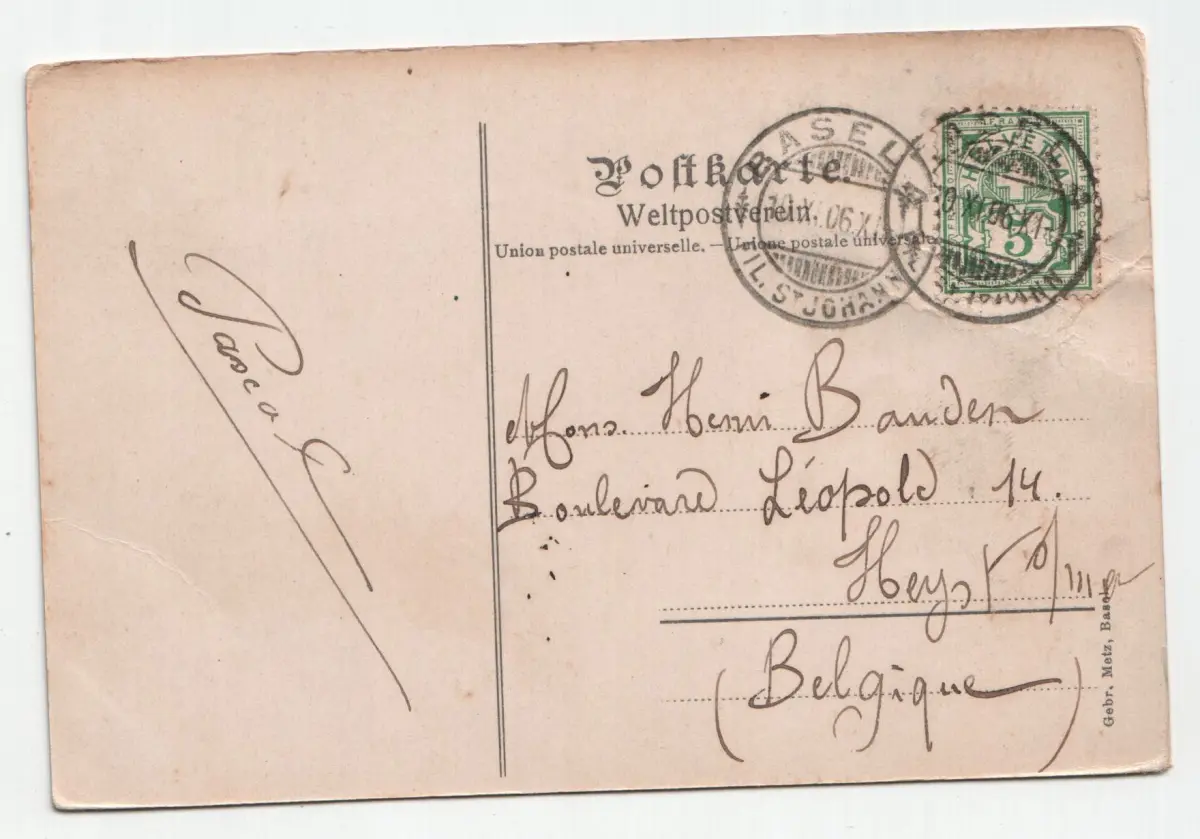 Postkarte.
Weltpostverein.
Union postale universelle. – Unione postale universale
BASEL
10.XI.06.XI
FIL. ST JOHANN
HELVETIA
5
Mons. Henri Bauden
Boulevard Léopold 14.
Heyst s/mer
(Belgique)
Gebr. Metz, Basel.